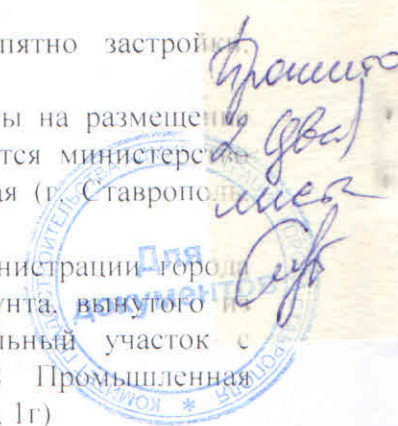 пятно застройки.
ты на размещение
тся министерство
ая (г. Ставрополь
нистрации города
унта, вынутого из
льный участок с
Промышленная
1г)
Прошито
2 (два)
листа
Для
документов